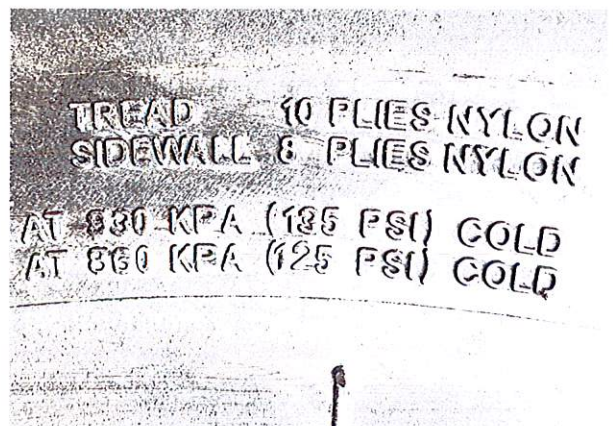 TREAD 10 PLIES NYLON
SIDEWALL 8 PLIES NYLON
AT 930 KPA (135 PSI) COLD
AT 860 KPA (125 PSI) COLD